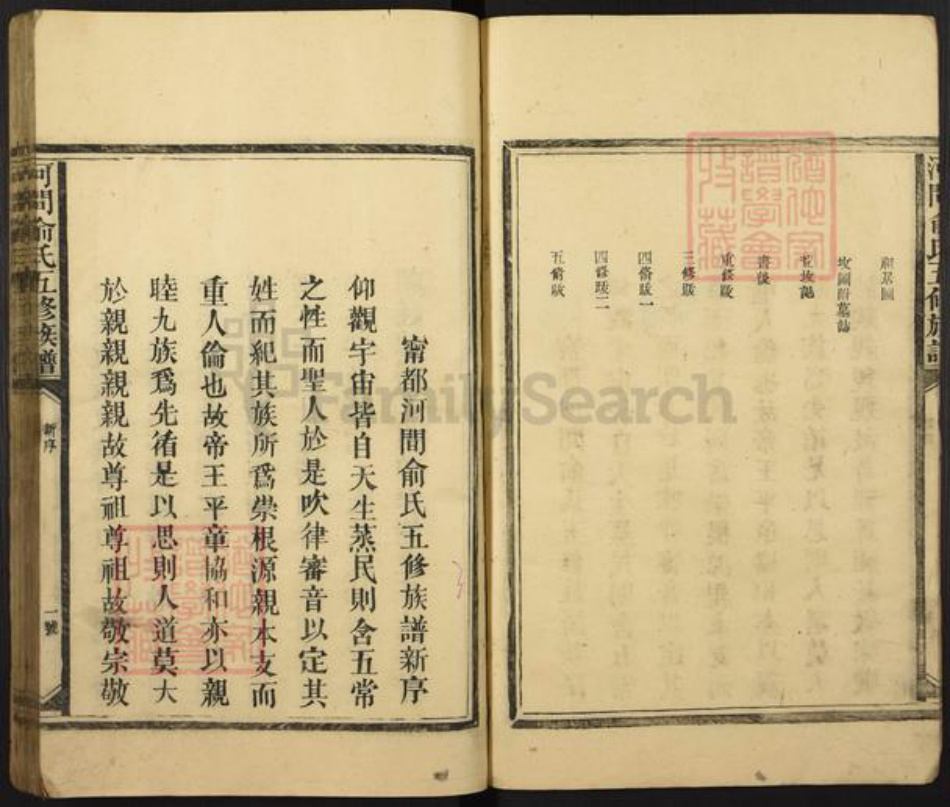 河間俞氏五修族譜
祠基圖
坟圖附墓誌
坵坟記
書後
重修跋
三修跋
四脩跋一
四修跋二
五脩跋
甯都河間俞氏五修族譜新序
仰觀宇宙皆自天生蒸民則含五常
之性而聖人於是吹律審音以定其
姓而紀其族所爲崇根源親本支而
重人倫也故帝王平章協和亦以親
睦九族爲先務是以思則人道莫大
於親親親親故尊祖尊祖故敬宗敬
河間俞氏五修族譜
新序
一號
FamilySearch